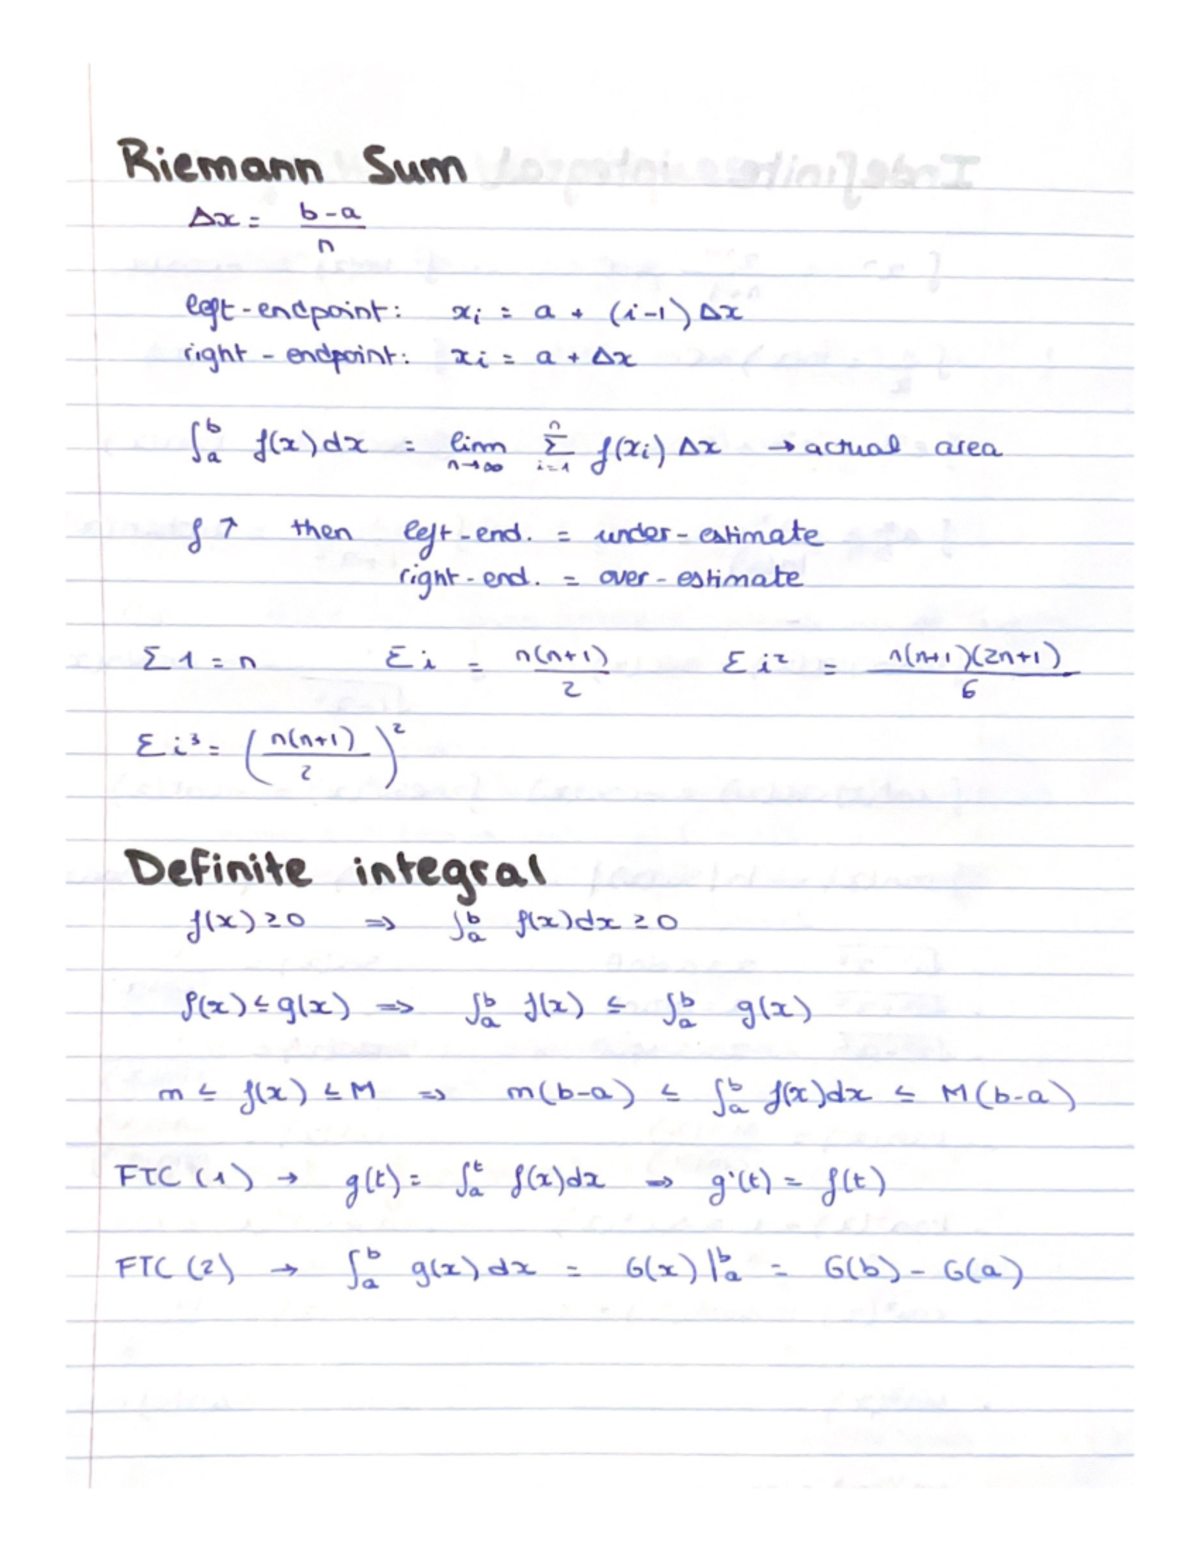 Riemann Sum
Δx = b-a / n
left-endpoint: xi = a + (i-1) Δx
right-endpoint: xi = a + Δx
∫ₐᵇ f(x)dx = lim n→∞ Σ i=1 n f(xi) Δx → actual area
f ↑ then left-end. = under-estimate
right-end. = over-estimate
Σ 1 = n Σ i = n(n+1) / 2 Σ i² = n(n+1)(2n+1) / 6
Σ i³ = (n(n+1) / 2)²
Definite integral
f(x) ≥ 0 ⇒ ∫ₐᵇ f(x)dx ≥ 0
f(x) ≤ g(x) ⇒ ∫ₐᵇ f(x) ≤ ∫ₐᵇ g(x)
m ≤ f(x) ≤ M ⇒ m(b-a) ≤ ∫ₐᵇ f(x)dx ≤ M(b-a)
FTC (1) → g(t) = ∫ₐᵗ f(x)dx ⇒ g'(t) = f(t)
FTC (2) → ∫ₐᵇ g(x)dx = G(x)|ₐᵇ = G(b) - G(a)